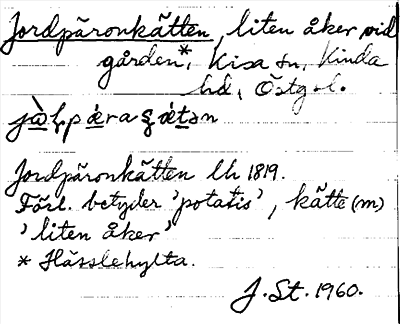 Jordpäronkätten, liten åker vid
gården*, Kisa sn, Kinda
hd, Östg-l.
Jordpäronkätten lh 1819.
Förl. betyder 'potatis', kätte (m)
'liten åker'
* Hässlehylta.
J. St. 1960.